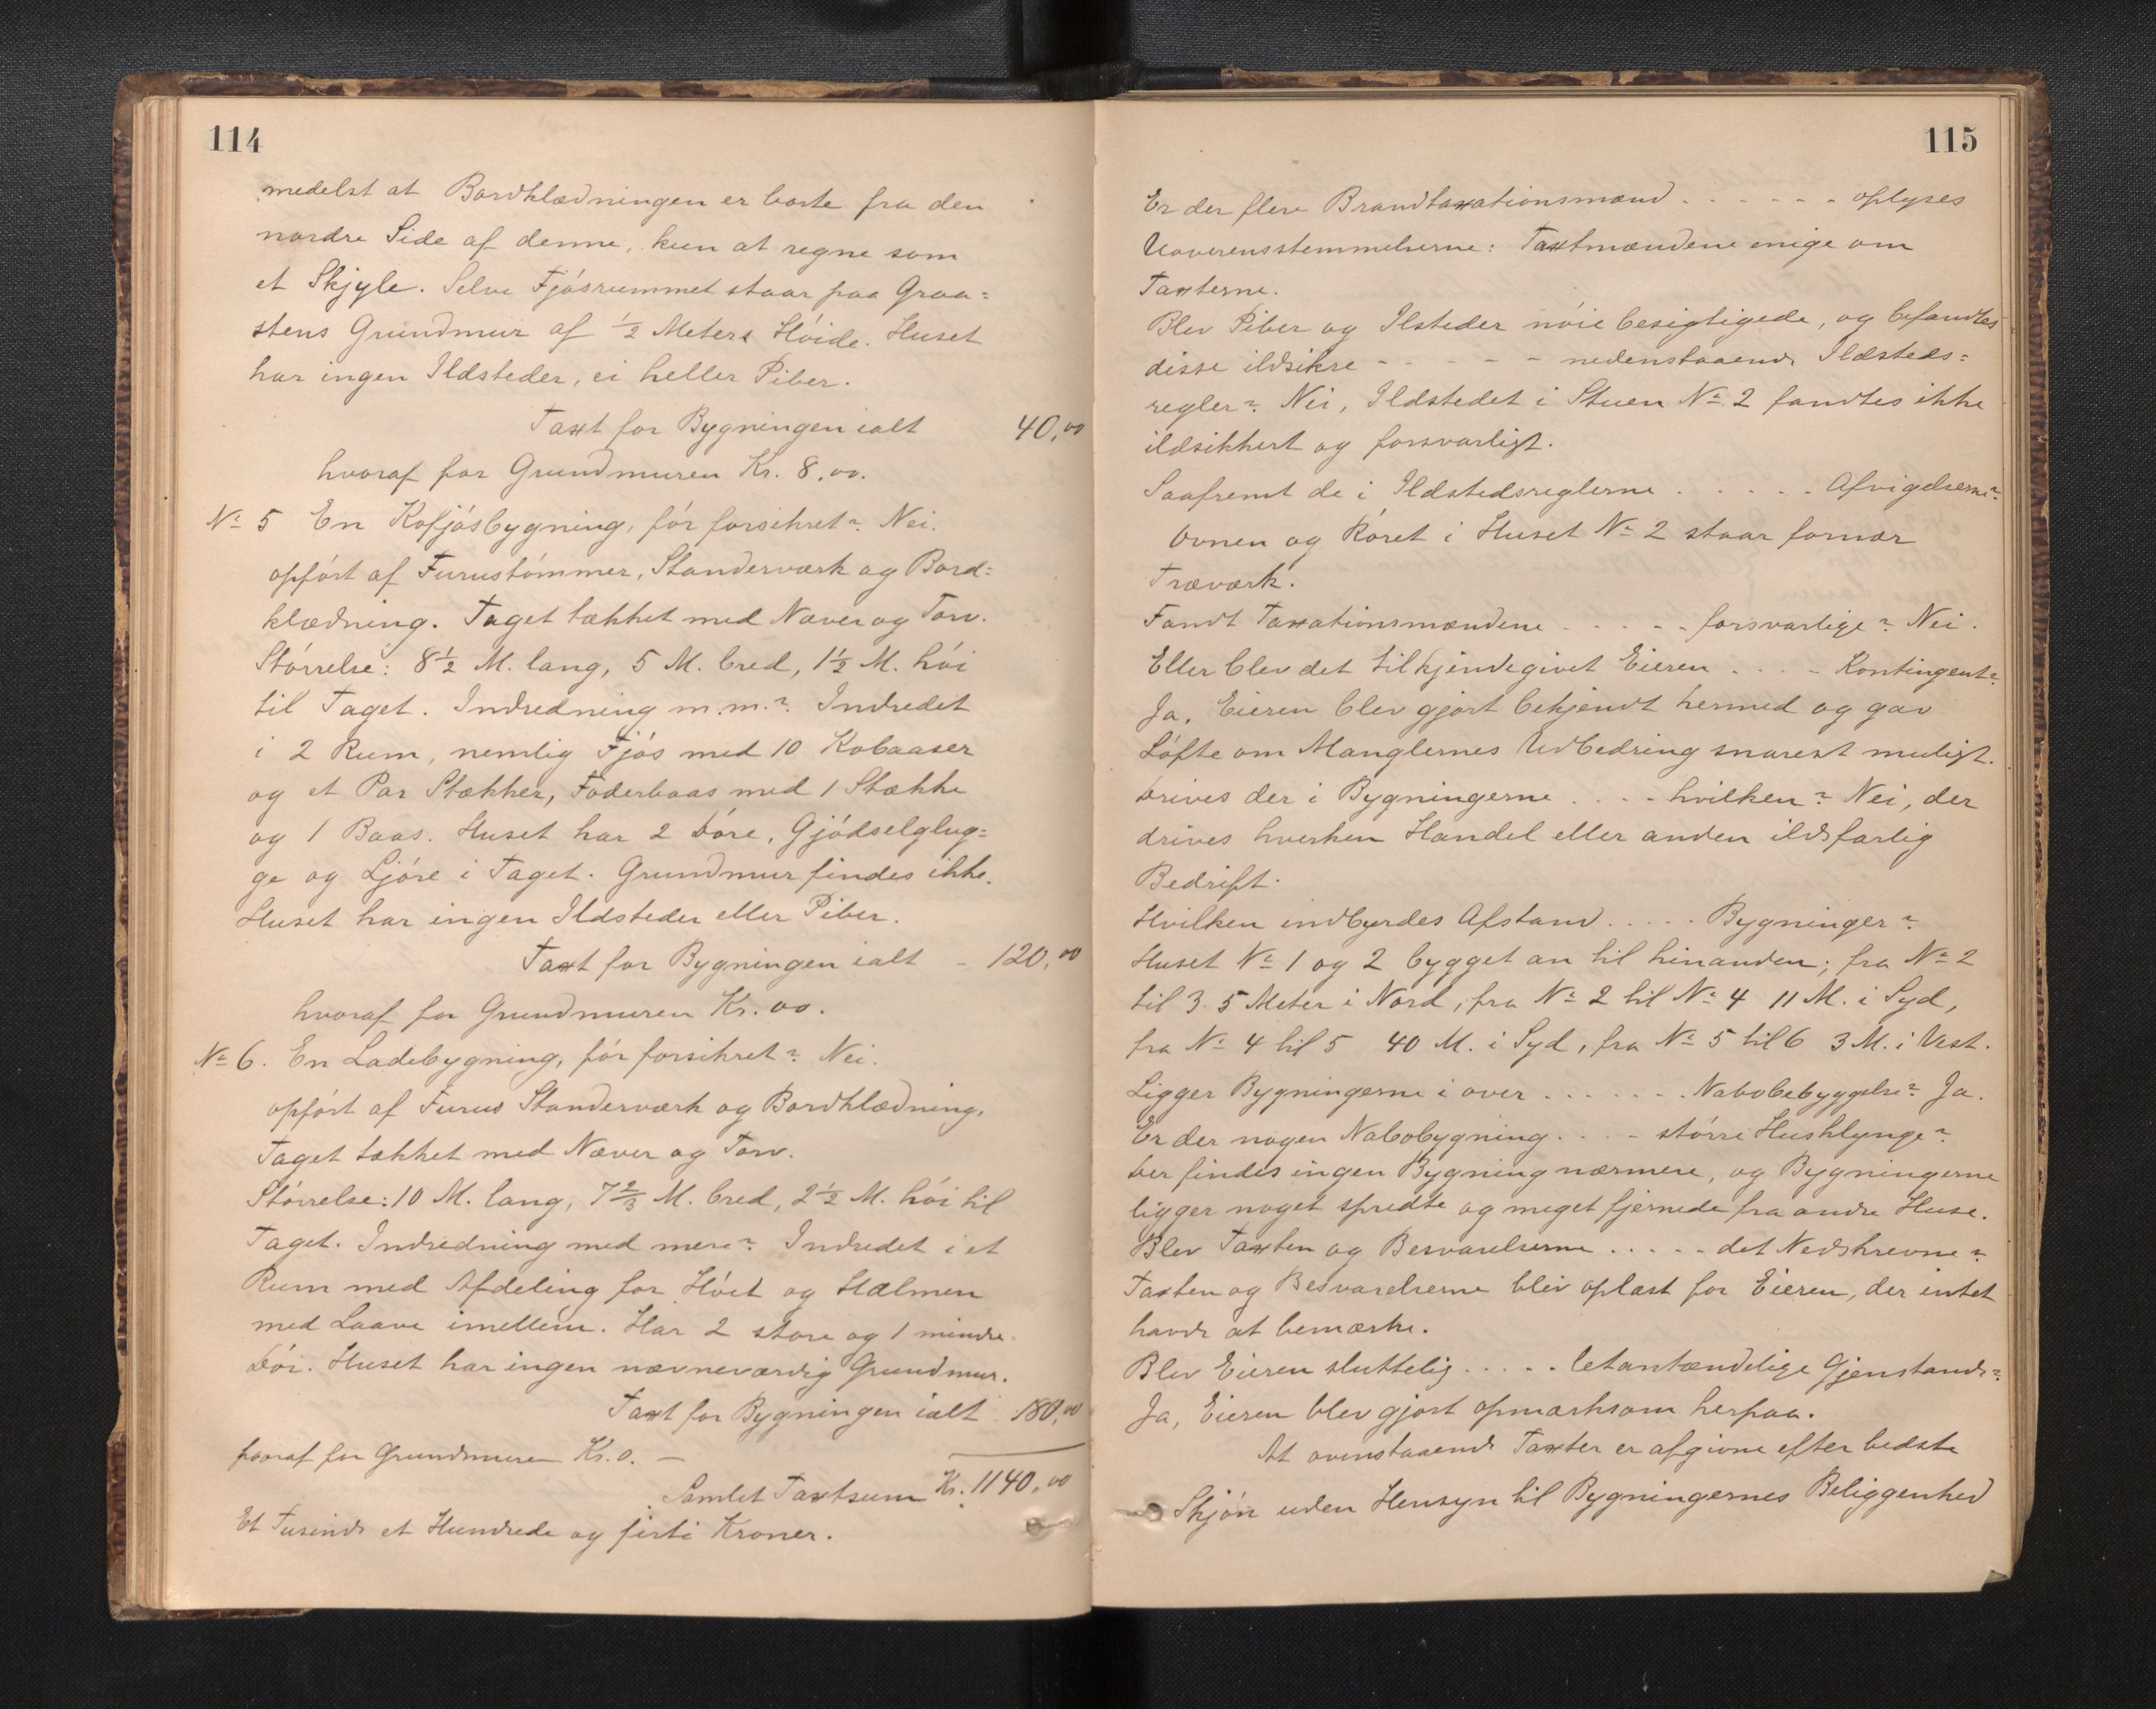 114
medelst at Bordklædningen er borte fra den
nordre Side af denne, kun at regne som
et Skjyle. Selve Fjósrummet staar paa Graa=
stens Grundmur af ½ Meters Hóide. Huset
har ingen Ildsteder, ei heller Piber.
Taxt for Bygningen ialt 40,00
hvoraf for Grundmuren Kr. 8,00.
No 5 En Kofjósbygning, fór forsikret? Nei.
opfórt af Furutómmer, Standerværk og Bord=
klædning. Taget tækket med Næver og Torv.
Stórrelse: 8½ M. lang, 5 M. bred, 1½ M. hói
til Taget. Indredning m.m.? Indredet
i 2 Rum, nemlig Fjós med 10 Kobaaser
og et Par Stækker, Foderbaas med 1 Stække
og 1 Baas. Huset har 2 Dóre, Gjódselglug=
ge og Ljóre i Taget. Grundmur findes ikke.
Huset har ingen Ildsteder eller Piber.
Taxt for Bygningen ialt - 120,00
hvoraf for Grundmuren Kr. 00.
No 6. En Ladebygning, fór forsikret? Nei.
opfórt af Furus Standerværk og Bordklædning,
Taget tækket med Næver og Torv.
Stórrelse: 10 M. lang, 7⅔ M. bred, 2½ M. hói til
Taget. Indredning med mere? Indredet i et
Rum med Afdeling for Hóet og Hælmen
med Laave imellem. Har 2 store og 1 mindre
Dór. Huset har ingen nævneværdig Grundmur.
Taxt for Bygningen ialt - 180,00
hvoraf for Grundmuren Kr. 0. —
Samlet Taxtsum Kr. 1140,00
Et Tusinde et Hundrede og firti Kroner.
115
Er der flere Brandtaxationsmænd . . . . . . oplyses
Uoverensstemmelserne: Taxtmændene enige om
Taxterne.
Blev Piber og Ilsteder nóie besigtigede, og befandtes
disse ildsikre - - - - - nedenstaaende Ildsteds=
regler? Nei, Ildstedet i Stuen No 2 fandtes ikke
ildsikkert og forsvarligt.
Saafremt de i Ildstedsreglerne . . . . . Afvigelserne?
Ovnen og Róret i Huset No 2 staar fornær
Træværk.
Fandt Taxationsmændene . . . . . forsvarlige? Nei.
Eller blev det tilkjendegivet Eieren . . . . Kontingent?
Ja, Eieren blev gjort bekjendt hermed og gav
Lófte om Manglernes Udbedring snarest muligt.
Drives der i Bygningerne . . . . hvilken? Nei, der
drives hverken Handel eller anden ildsfarlig
Bedrift.
Hvilken indbyrdes Afstand . . . . . Bygninger?
Huset No 1 og 2 bygget an til hinanden; fra No 2
til 3 5 Meter i Nord, fra No 2 til No 4 11 M. i Syd,
fra No 4 til 5 40 M. i Syd, fra No 5 til 6 3 M. i Vest.
Ligger Bygningerne i over . . . . . . . Nabobebyggelse? Ja.
Er der nogen Nabobygning . . . . stórre Husklynge?
Der findes ingen Bygning nærmere, og Bygningerne
ligger noget spredte og meget fjernede fra andre Huse.
Blev Taxten og Besvarelserne . . . . . det Nedskrevne?
Taxten og Besvarelserne blev oplæst for Eieren, der intet
havde at bemærke.
Blev Eieren sluttelig . . . . . letantændelige Gjenstande?
Ja, Eieren blev gjort opmærksom herpaa.
At ovenstaaende Taxter er afgivne efter bedste
Skjón uden Hensyn til Bygningernes Beliggenhed